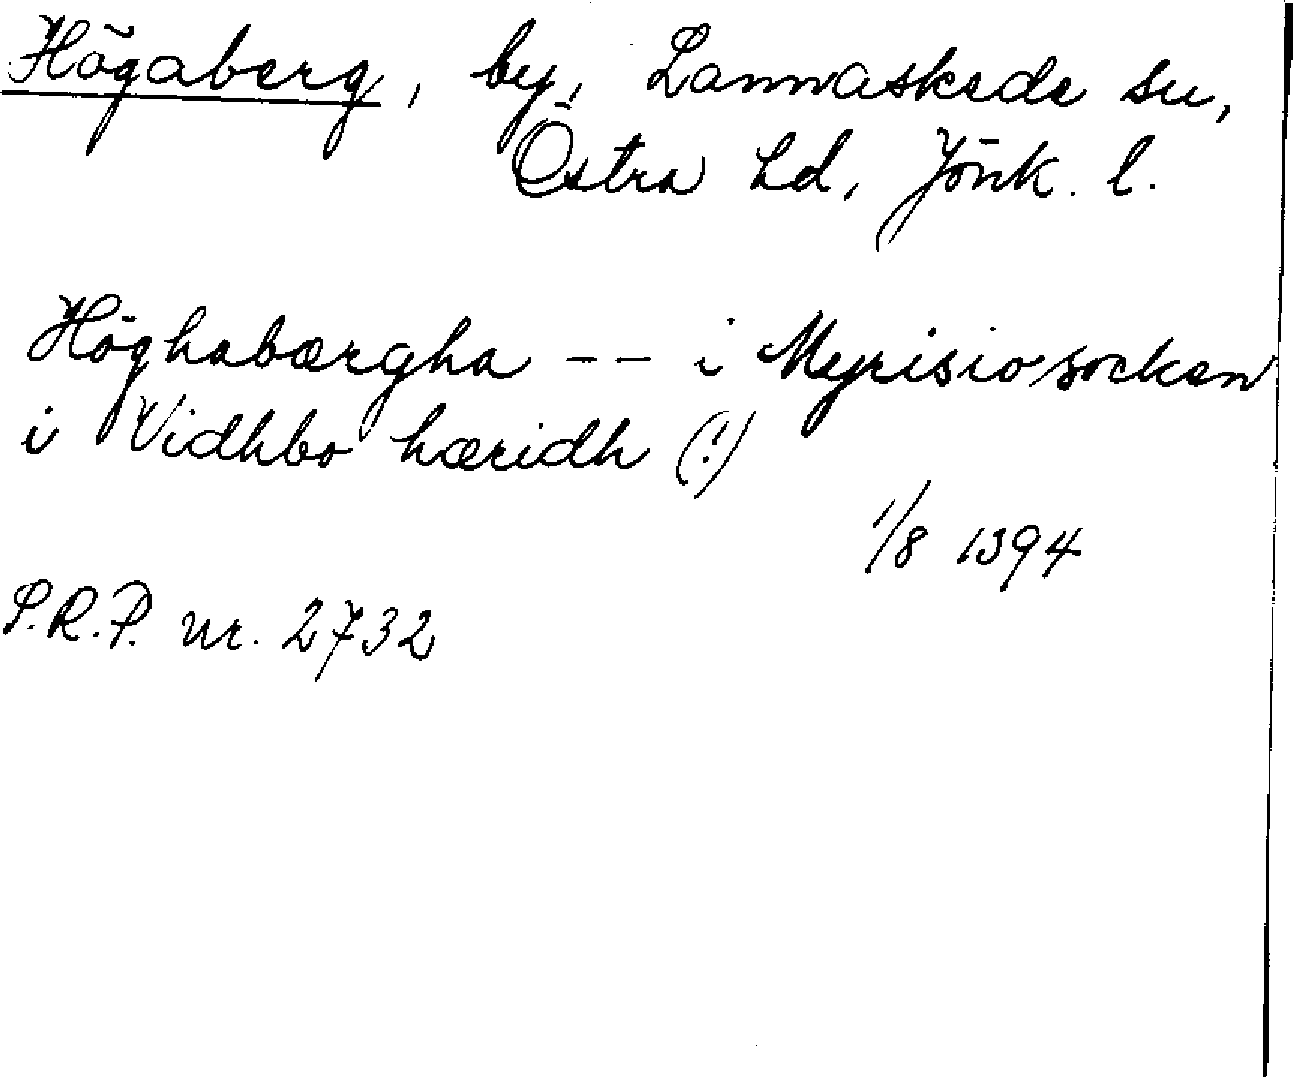 Högaberg, by, Lannaskede sn,
Östra hd, Jönk. l.
Höghabærgha -- i Myrisiosocken
i Vidhbo hæridh (!)
1/8 1394
S.R.P. nr. 2732